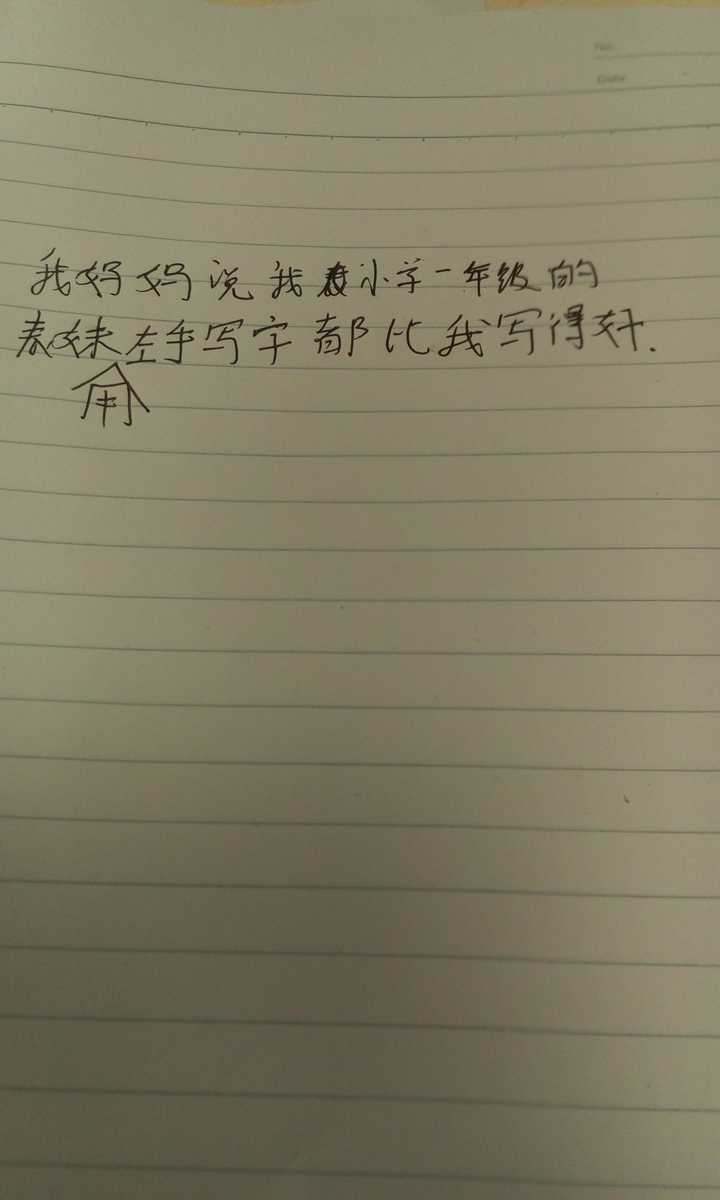 No.
Date
我妈妈说我表小学一年级的
表妹用左手写字都比我写得好.